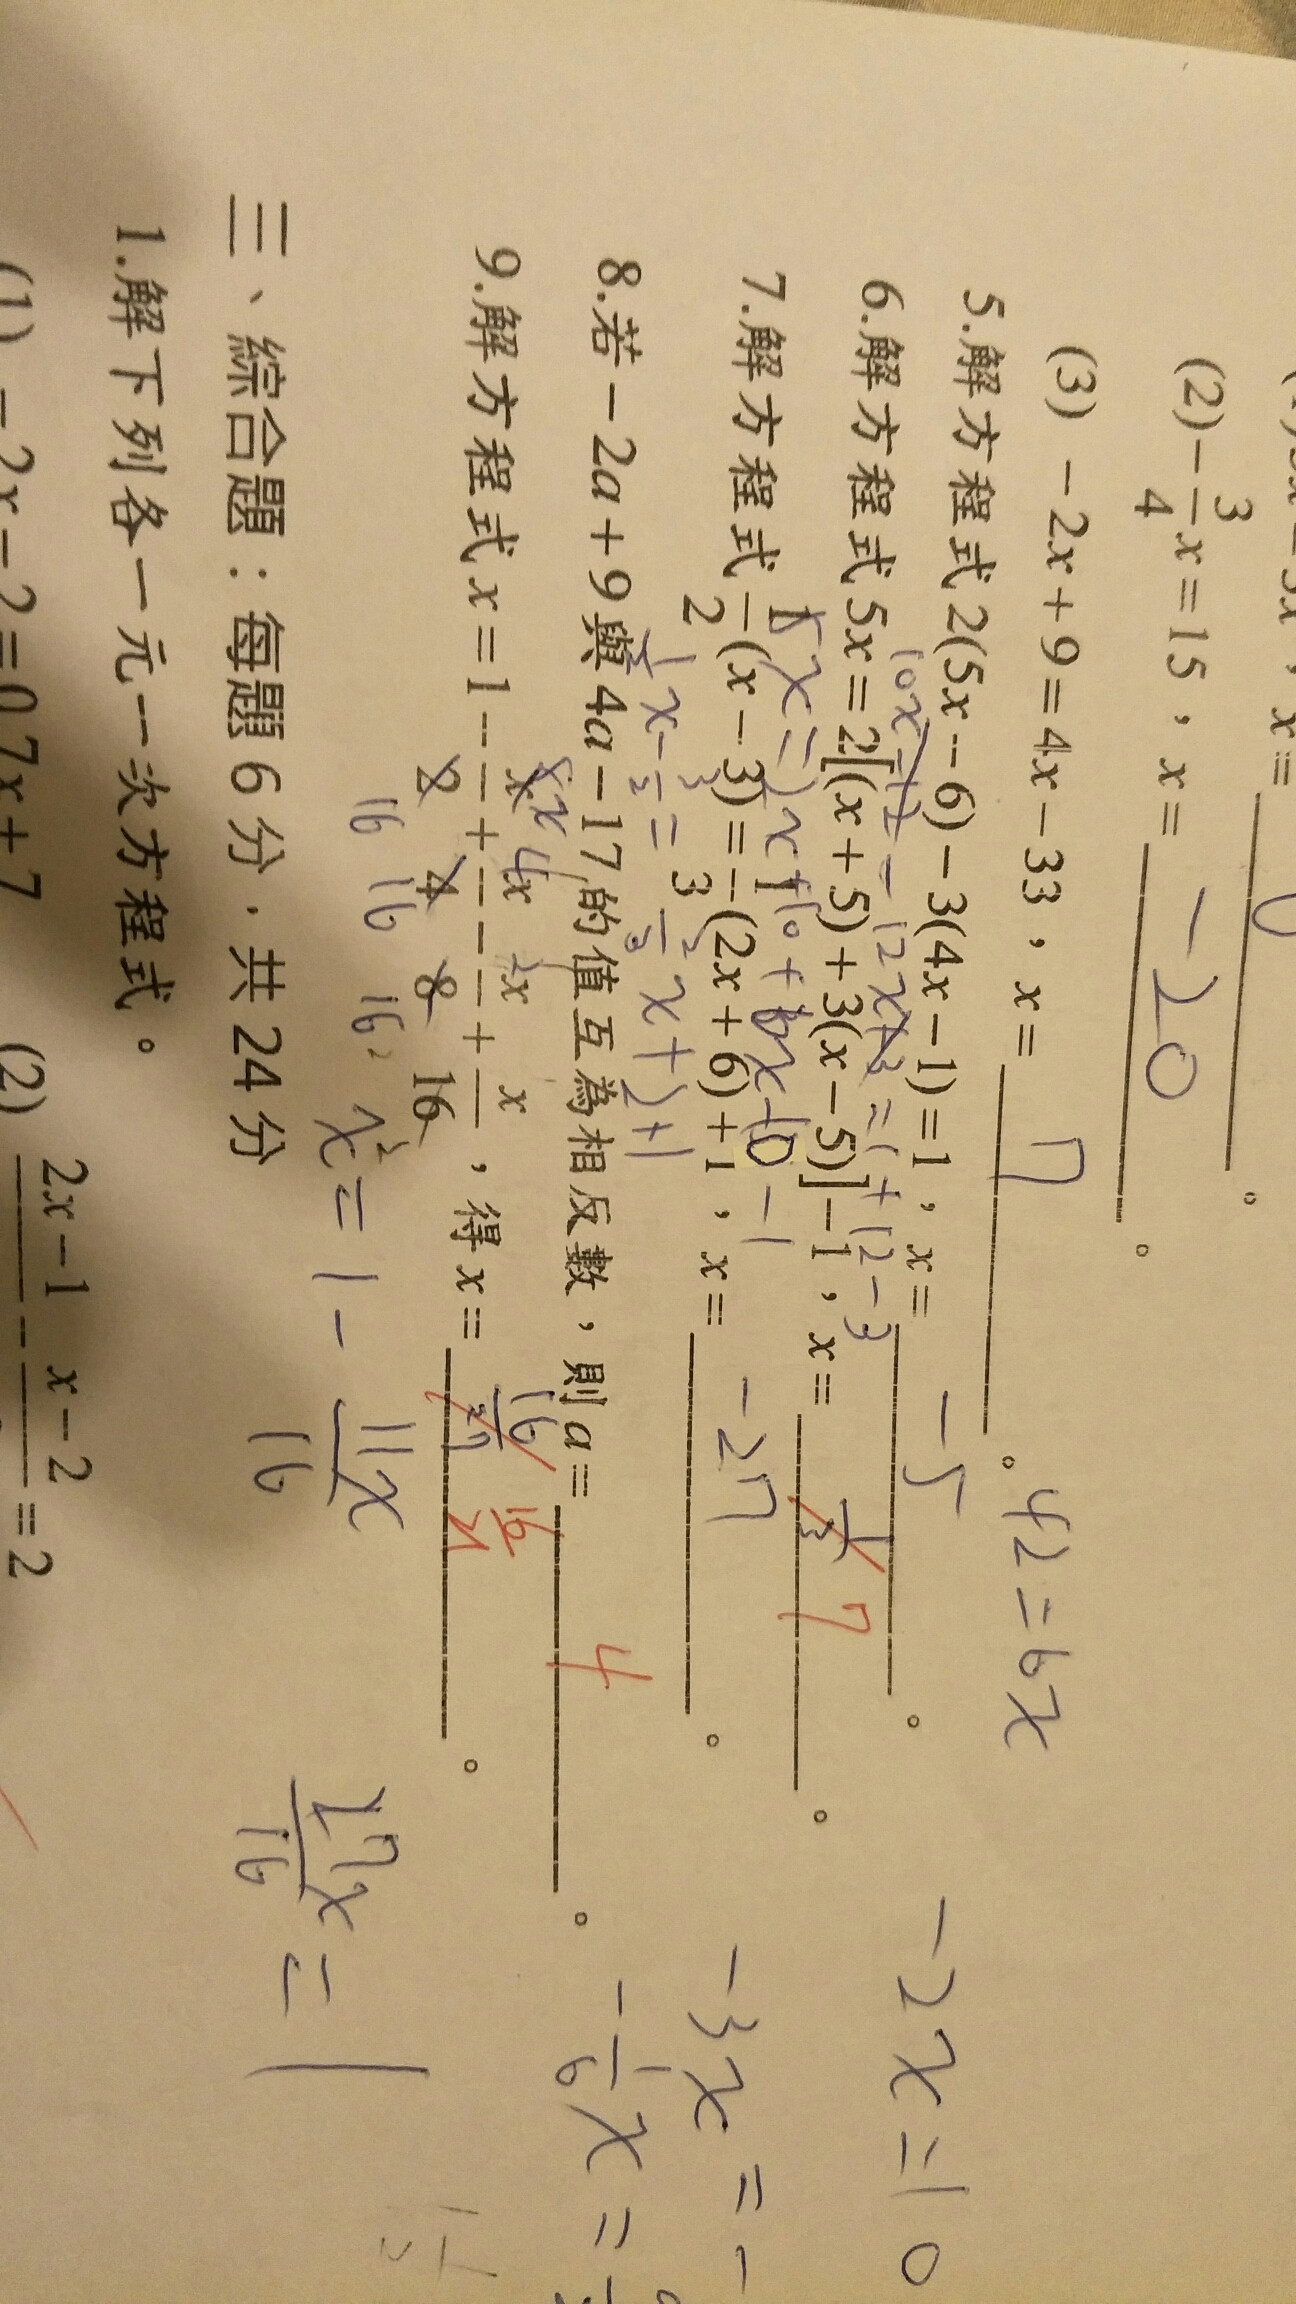 (2) -3/4 x = 15，x = -20。
(3) -2x + 9 = 4x - 33，x = 7。 42 = 6x
5.解方程式 2(5x - 6) - 3(4x - 1) = 1，x = -5。 -2x = 10
10x - 12 - 12x + 3 = 1 + 12 - 3
6.解方程式 5x = 2[(x + 5) + 3(x - 5)] - 1，x = 1/3 7。 -3x = -
x = 2x + 10 + 6x - 10 - 1
7.解方程式 1/2 (x - 3) = 1/3 (2x + 6) + 1，x = -27。
1/2 x - 3/2 = 2/3 x + 2 + 1 -1/6 x =
8.若 -2a + 9 與 4a - 17 的值互為相反數，則 a = 4。
8x 4x 2x
9.解方程式 x = 1 - x/2 + x/4 - x/8 + x/16，得 x = 16/27 16/21。
16 16 16
x = 1 - 11x/16 27x/16 = 1
三、綜合題：每題 6 分，共 24 分
1.解下列各一元一次方程式。
(1) -2x - 2 = 0.7x + 7 (2)